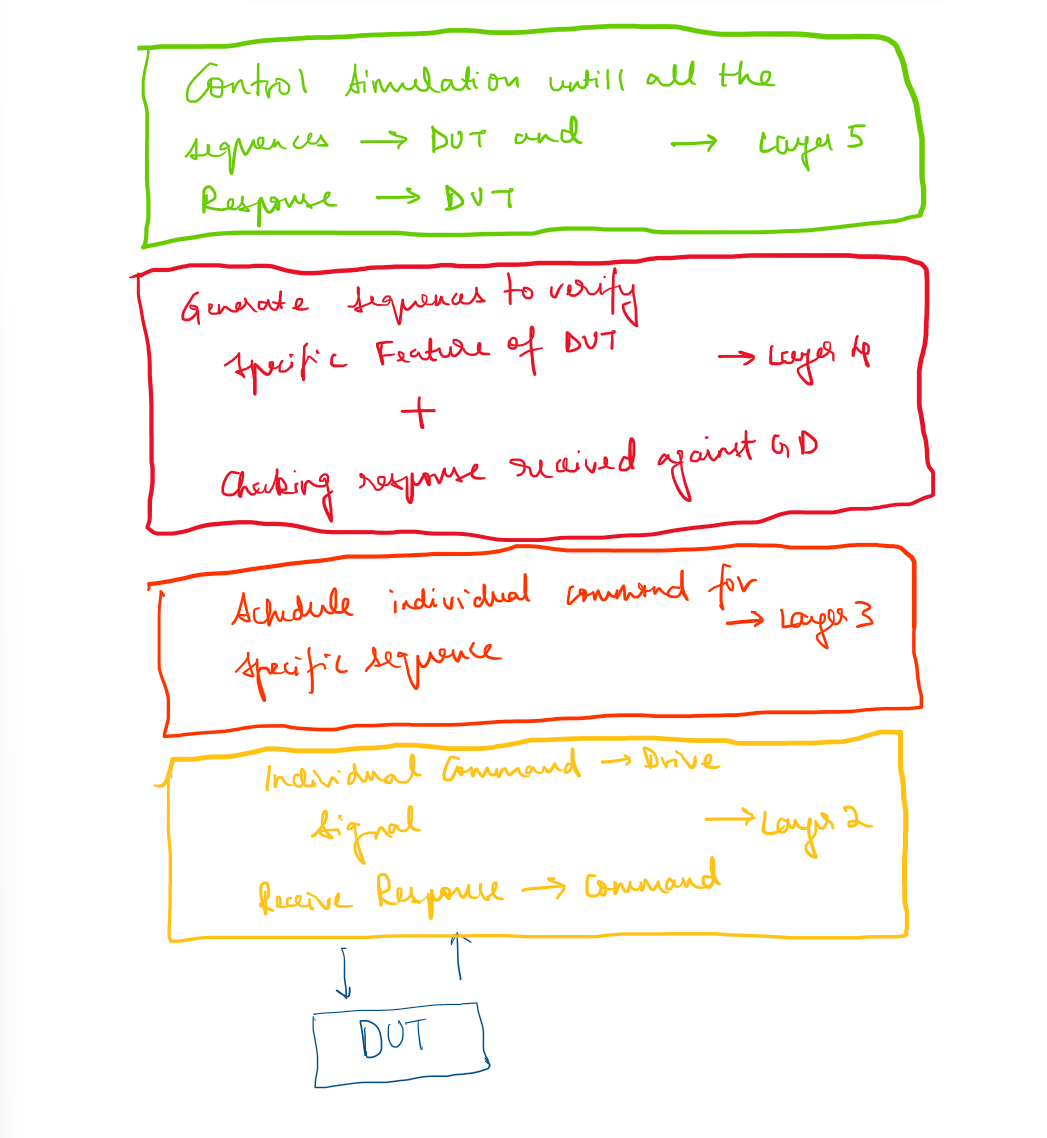 Control simulation untill all the
sequences → DUT and → Layer 5
Response → DUT
Generate sequences to verify
specific Feature of DUT → Layer 4
+
Checking response received against GD
Schedule individual command for
→ Layer 3
specific sequence
Individual Command → Drive
signal → Layer 2
Receive Response → Command
DUT